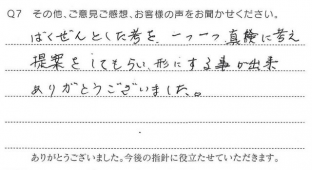 Q7 その他、ご意見ご感想、お客様の声をお聞かせください。
ばくぜんとした考を、一つ一つ真険に考え
提案をしてもらい、形にする事が出来
ありがとうございました。
ありがとうございました。今後の指針に役立たせていただきます。